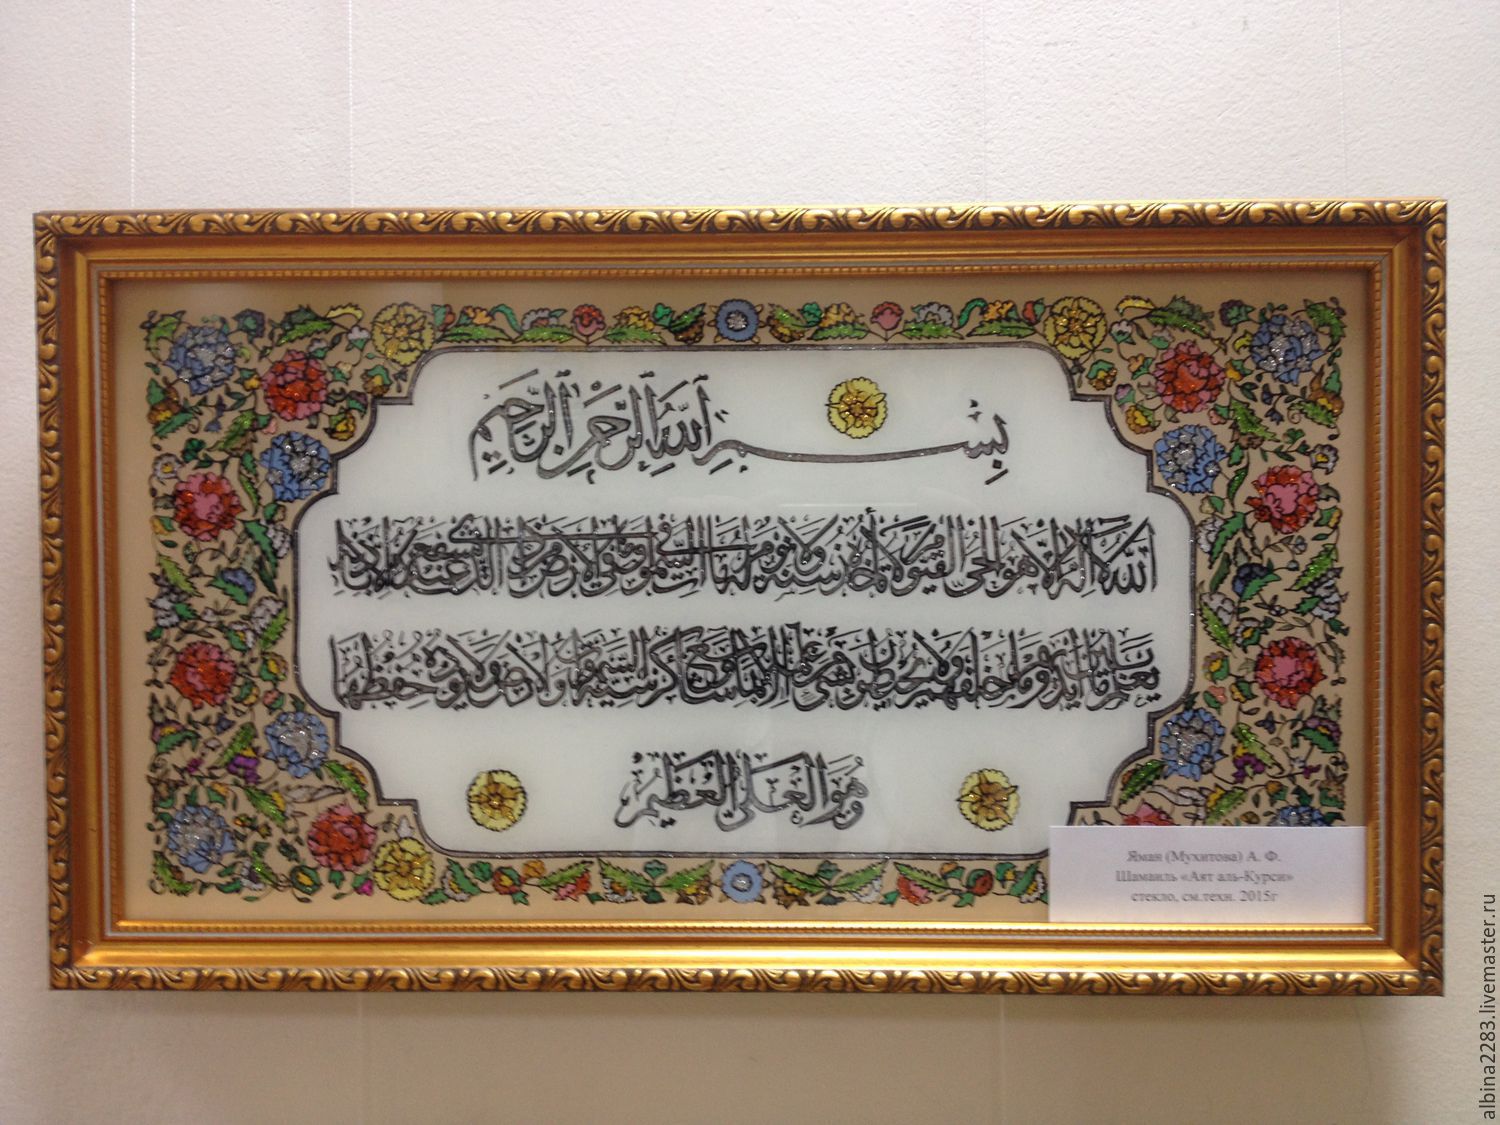 بِسْمِ اللَّهِ الرَّحْمَنِ الرَّحِيمِ
اللَّهُ لَا إِلَهَ إِلَّا هُوَ الْحَيُّ الْقَيُّومُ لَا تَأْخُذُهُ سِنَةٌ وَلَا نَوْمٌ لَهُ مَا فِي السَّمَوَاتِ وَمَا فِي الْأَرْضِ مَنْ ذَا الَّذِي يَشْفَعُ عِنْدَهُ إِلَّا بِإِذْنِهِ
يَعْلَمُ مَا بَيْنَ أَيْدِيهِمْ وَمَا خَلْفَهُمْ وَلَا يُحِيطُونَ بِشَيْءٍ مِنْ عِلْمِهِ إِلَّا بِمَا شَاءَ وَسِعَ كُرْسِيُّهُ السَّمَوَاتِ وَالْأَرْضَ وَلَا يَئُودُهُ حِفْظُهُمَا
وَهُوَ الْعَلِيُّ الْعَظِيمُ
Яман (Мухитова) А. Ф.
Шамаиль «Аят аль-Курси»
стекло, см.техн. 2015г
albina2283.livemaster.ru